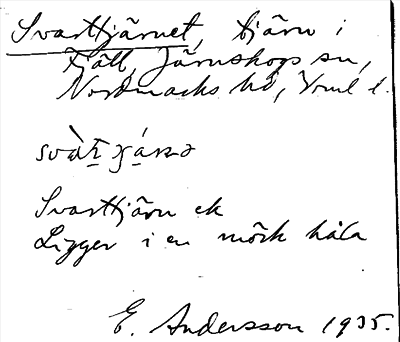 Svarttjärnet, tjärn i
Fjäll, Järnskogs sn,
Nordmarks hd, Vrml l.
Svarttjärn ek
Ligger i en mörk håla
E. Andersson 1935.